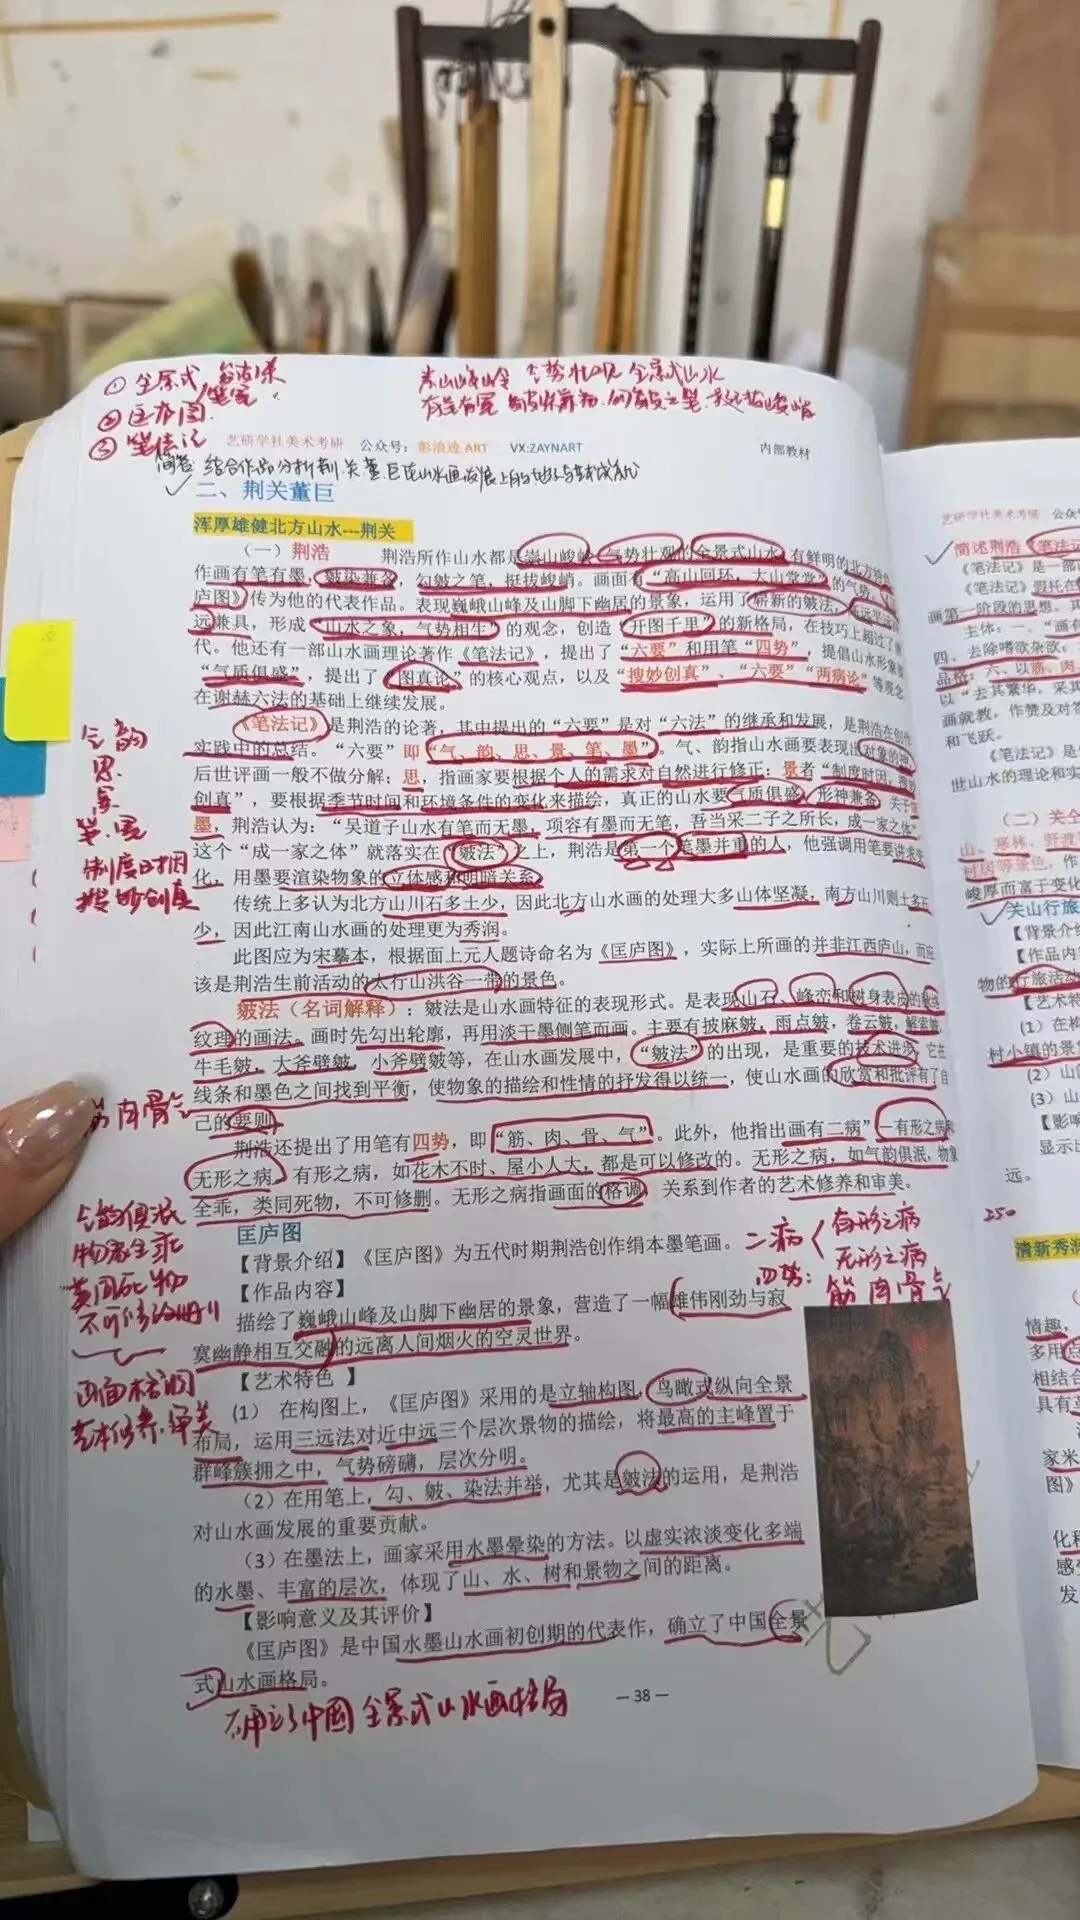 ① 全景式
② 匡庐图
③ 笔法记
崇山峻岭 气势壮观 全景式山水
有笔有墨 皴染兼备 勾皴之笔 挺拔峻峭
艺研学社美术考研 公众号：彭浪迹 ART VX:ZAYNART 内部教材
简答 结合作品分析荆关董巨在山水画发展上的
二、荆关董巨
浑厚雄健北方山水---荆关
（一）荆浩 荆浩所作山水都是崇山峻岭，气势壮观的全景式山水，有鲜明的北方特色，
作画有笔有墨，皴染兼备，勾皴之笔，挺拔峻峭。画面有“高山回环，大山堂堂”的气势。
庐图》传为他的代表作品。表现巍峨山峰及山脚下幽居的景象，运用了崭新的皴法，
远兼具，形成“山水之象，气势相生”的观念，创造“开图千里”的新格局，在技巧上超过了
代。他还有一部山水画理论著作《笔法记》，提出了“六要”和用笔“四势”，提倡山水形象
“气质俱盛”，提出了“图真论”的核心观点，以及“搜妙创真”、“六要”“两病论”等观念
在谢赫六法的基础上继续发展。
《笔法记》是荆浩的论著，其中提出的“六要”是对“六法”的继承和发展，是荆浩在创作
实践中的总结。“六要”即“气、韵、思、景、笔、墨”。气、韵指山水画要表现出对象的神
后世评画一般不做分解；思，指画家要根据个人的需求对自然进行修正；景者“制度时因，搜妙
创真”，要根据季节时间和环境条件的变化来描绘，真正的山水要气质俱盛，形神兼备。关于
墨，荆浩认为：“吴道子山水有笔而无墨，项容有墨而无笔，吾当采二子之所长，成一家之体”
这个“成一家之体”就落实在“皴法”之上，荆浩是第一个笔墨并重的人，他强调用笔要讲求变
化，用墨要渲染物象的立体感和明暗关系。
传统上多认为北方山川石多土少，因此北方山水画的处理大多山体坚凝，南方山川则土多石
少，因此江南山水画的处理更为秀润。
此图应为宋摹本，根据面上元人题诗命名为《匡庐图》，实际上所画的并非江西庐山，而应
该是荆浩生前活动的太行山洪谷一带的景色。
皴法（名词解释）：皴法是山水画特征的表现形式。是表现山石、峰峦和树身表皮的
纹理的画法。画时先勾出轮廓，再用淡干墨侧笔而画。主要有披麻皴，雨点皴，卷云皴，解索皴，
牛毛皴，大斧劈皴，小斧劈皴等，在山水画发展中，“皴法”的出现，是重要的技术进步，它在
线条和墨色之间找到平衡，使物象的描绘和性情的抒发得以统一，使山水画的欣赏和批评有了自
己的要则。
荆浩还提出了用笔有四势，即“筋、肉、骨、气”。此外，他指出画有二病”一有形之病
无形之病。有形之病，如花木不时、屋小人大，都是可以修改的。无形之病，如气韵俱泯，物象
全乖，类同死物，不可修删。无形之病指画面的格调，关系到作者的艺术修养和审美。
匡庐图
【背景介绍】《匡庐图》为五代时期荆浩创作绢本墨笔画。
【作品内容】
描绘了巍峨山峰及山脚下幽居的景象，营造了一幅雄伟刚劲与寂
寞幽静相互交融的远离人间烟火的空灵世界。
【艺术特色 】
(1) 在构图上，《匡庐图》采用的是立轴构图，鸟瞰式纵向全景
布局，运用三远法对近中远三个层次景物的描绘，将最高的主峰置于
群峰簇拥之中，气势磅礴，层次分明。
（2）在用笔上，勾、皴、染法并举，尤其是皴法的运用，是荆浩
对山水画发展的重要贡献。
（3）在墨法上，画家采用水墨晕染的方法。以虚实浓淡变化多端
的水墨、丰富的层次，体现了山、水、树和景物之间的距离。
【影响意义及其评价】
《匡庐图》是中国水墨山水画初创期的代表作，确立了中国全景
式山水画格局。
确立了中国全景式山水画格局
— 38 —
气韵
思.
景.
笔.墨
制度时因
搜妙创真
筋肉骨气
气韵俱泯
物象全乖
类同死物
不可修删
画面格调
艺术修养.审美
二病 有形之病
无形之病
四势：筋肉骨气
艺研学社美术考研 公众
简述荆浩《笔法
《笔法记》是一部
《笔法记》假托在
画第一阶段的思想。其
主体：一、“画有
四、去除嗜欲杂欲；
品格；六、以筋、肉、
以“去其繁华，采其
画就教，作赞及对答
和飞跃。
《笔法记》是
世山水的理论和实
（二）关仝
山、寒林、野渡
村居等景色，作
峻厚而富于变化
关山行旅
【背景介绍
【作品内容
物的行旅活动
【艺术特
（1）在构
村小镇的景象
（2）山
（3）山
【影响
显示出
远。
250
清新秀润
情趣，
多用点
相结合
具有
家米
图》
化和
感受
发